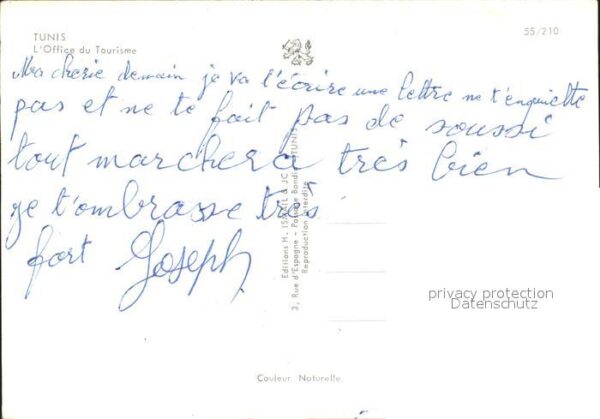 TUNIS
L'Office du Tourisme
55/210
Ma cherie demain je va t'écrire une lettre ne t'enquiette
pas et ne te fait pas de soussi
tout marchera très bien
je t'ombrasse très
fort Joseph
Editions H. ISMAIL & JC TUNIS
3, Rue d'Espagne - Passage Bondin
Reproduction Interdite
privacy protection
Datenschutz
Couleur Naturelle.